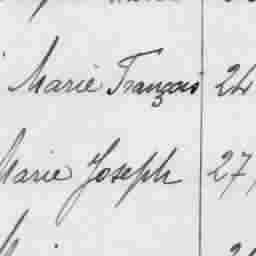 Marie François 24
Marie Joseph 27